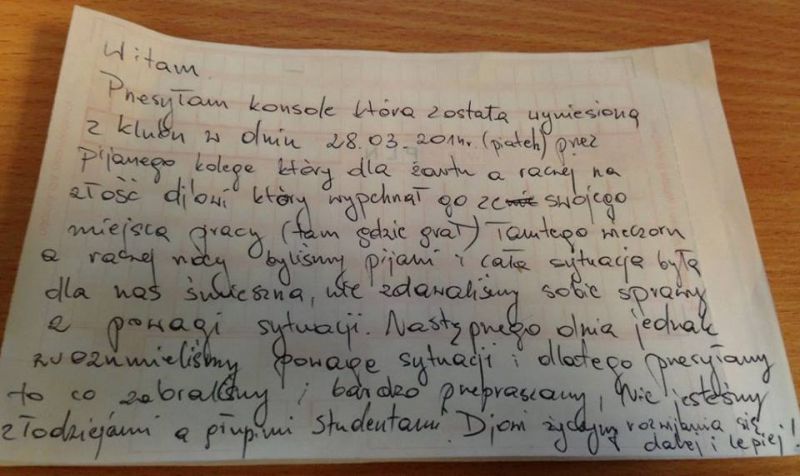 Witam.
Przesyłam konsole która została wyniesioną
z klubu w dniu 28.03.2014r. (piątek) przez
pijanego kolege który dla żartu a raczej na
złość dj'owi który wypchnął go ze swojego
miejsca pracy (tam gdzie grał) Tamtego wieczoru
a raczej nocy byliśmy pijani i cała sytuacja była
dla nas śmieszna, nie zdawaliśmy sobie sprawy
z powagi sytuacji. Następnego dnia jednak
zrozumieliśmy powagę sytuacji i dlatego przesyłamy
to co zabraliśmy i bardzo przepraszamy, Nie jesteśmy
złodziejami a głupimi studentami. Djom życzymy rozwijania się
dalej i lepiej!